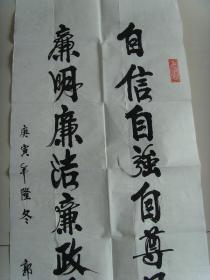 自信自强自尊
廉明廉洁廉政
庚寅年隆冬 郭